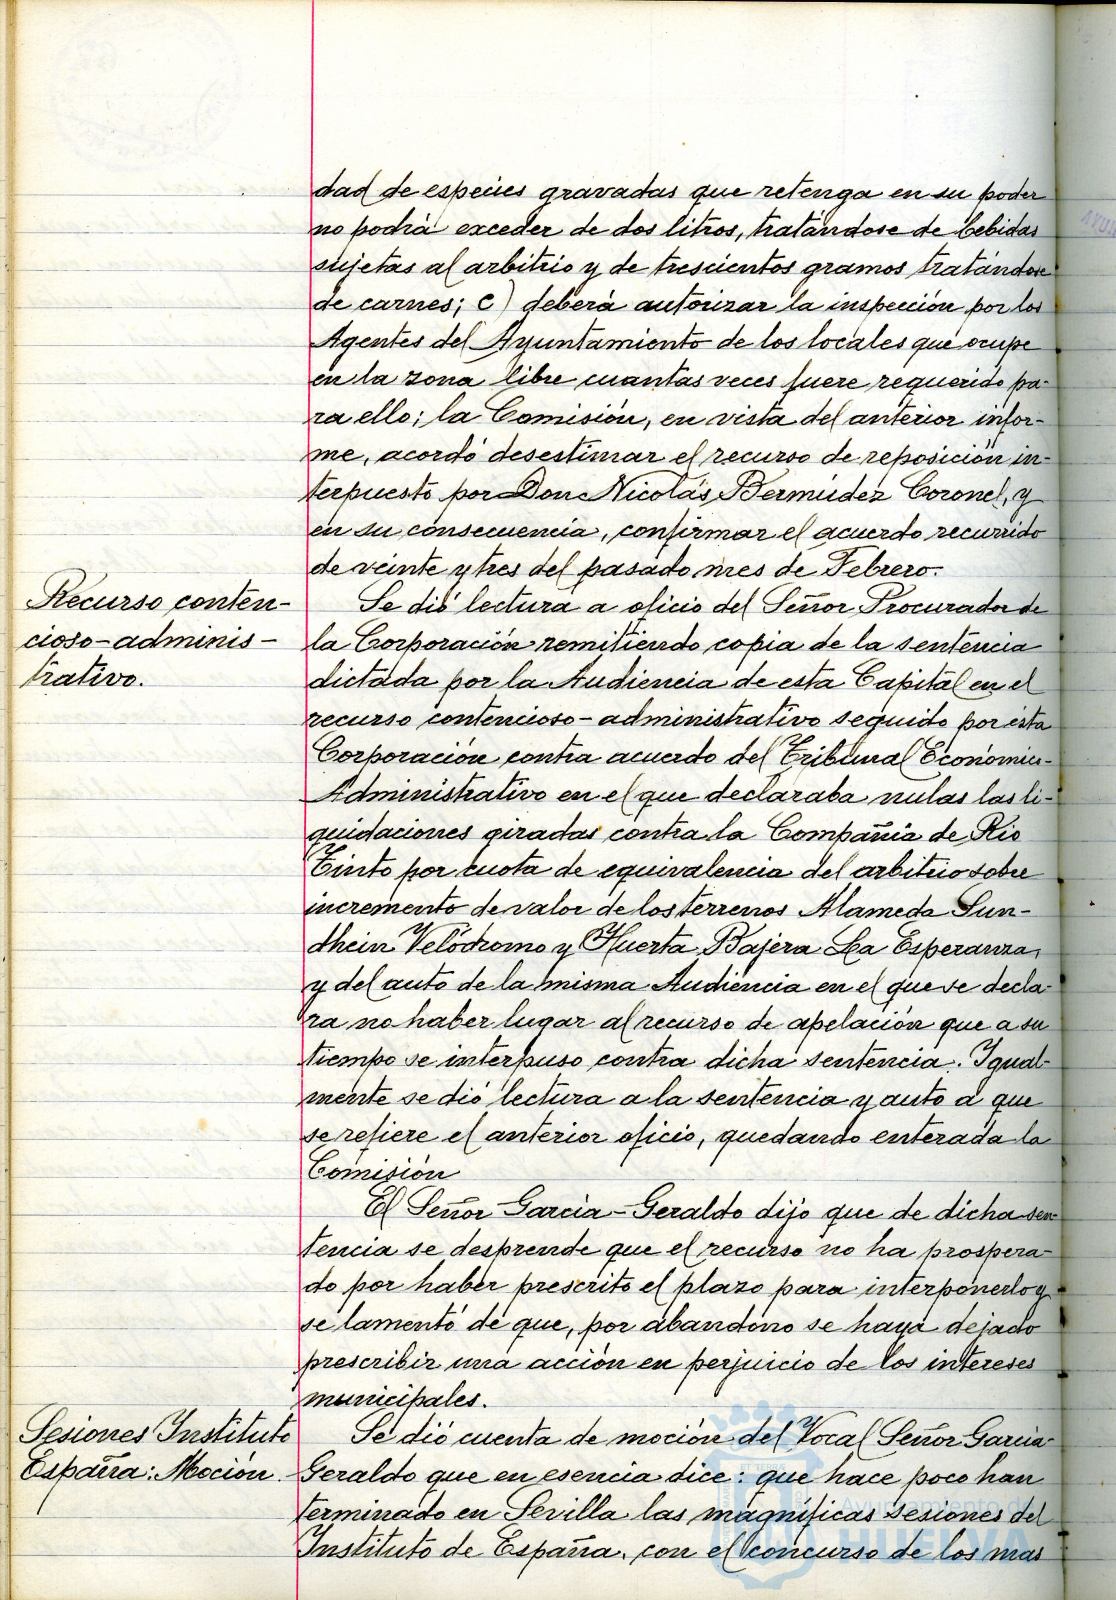 dad de especies gravadas que retenga en su poder
no podrá exceder de dos litros, tratándose de bebidas
sujetas al arbitrio y de trescientos gramos tratándose
de carnes; c) deberá autorizar la inspección por los
Agentes del Ayuntamiento de los locales que ocupe
en la zona libre cuantas veces fuere requerido pa-
ra ello; la Comisión, en vista del anterior infor-
me, acordó desestimar el recurso de reposición in-
terpuesto por Don Nicolás Bermúdez Coronel, y
en su consecuencia, confirmar el acuerdo recurrido
de veinte y tres del pasado mes de Febrero.
Recurso conten-
cioso-adminis-
trativo.
Se dió lectura a oficio del Señor Procurador de
la Corporación remitiendo copia de la sentencia
dictada por la Audiencia de esta Capital en el
recurso contencioso-administrativo seguido por esta
Corporación contra acuerdo del Tribunal Económico-
Administrativo en el que declaraba nulas las li-
quidaciones giradas contra la Compañia de Rio
Tinto por cuota de equivalencia del arbitrio sobre
incremento de valor de los terrenos Alameda Sun-
dhein Velódromo y Huerta Bajera La Esperanza,
y del auto de la misma Audiencia en el que se decla-
ra no haber lugar al recurso de apelación que a su
tiempo se interpuso contra dicha sentencia. Igual-
mente se dió lectura a la sentencia y auto a que
se refiere el anterior oficio, quedando enterada la
Comisión
El Señor García-Geraldo dijo que de dicha sen-
tencia se desprende que el recurso no ha prospera-
do por haber prescrito el plazo para interponerlo y
se lamentó de que, por abandono se haya dejado
prescribir una acción en perjuicio de los intereses
municipales.
Sesiones Instituto
España: Moción
Se dió cuenta de moción del Vocal Señor García
Geraldo que en esencia dice: que hace poco han
terminado en Sevilla las magníficas sesiones del
Instituto de España, con el concurso de los mas
Ayuntamiento de
HUELVA